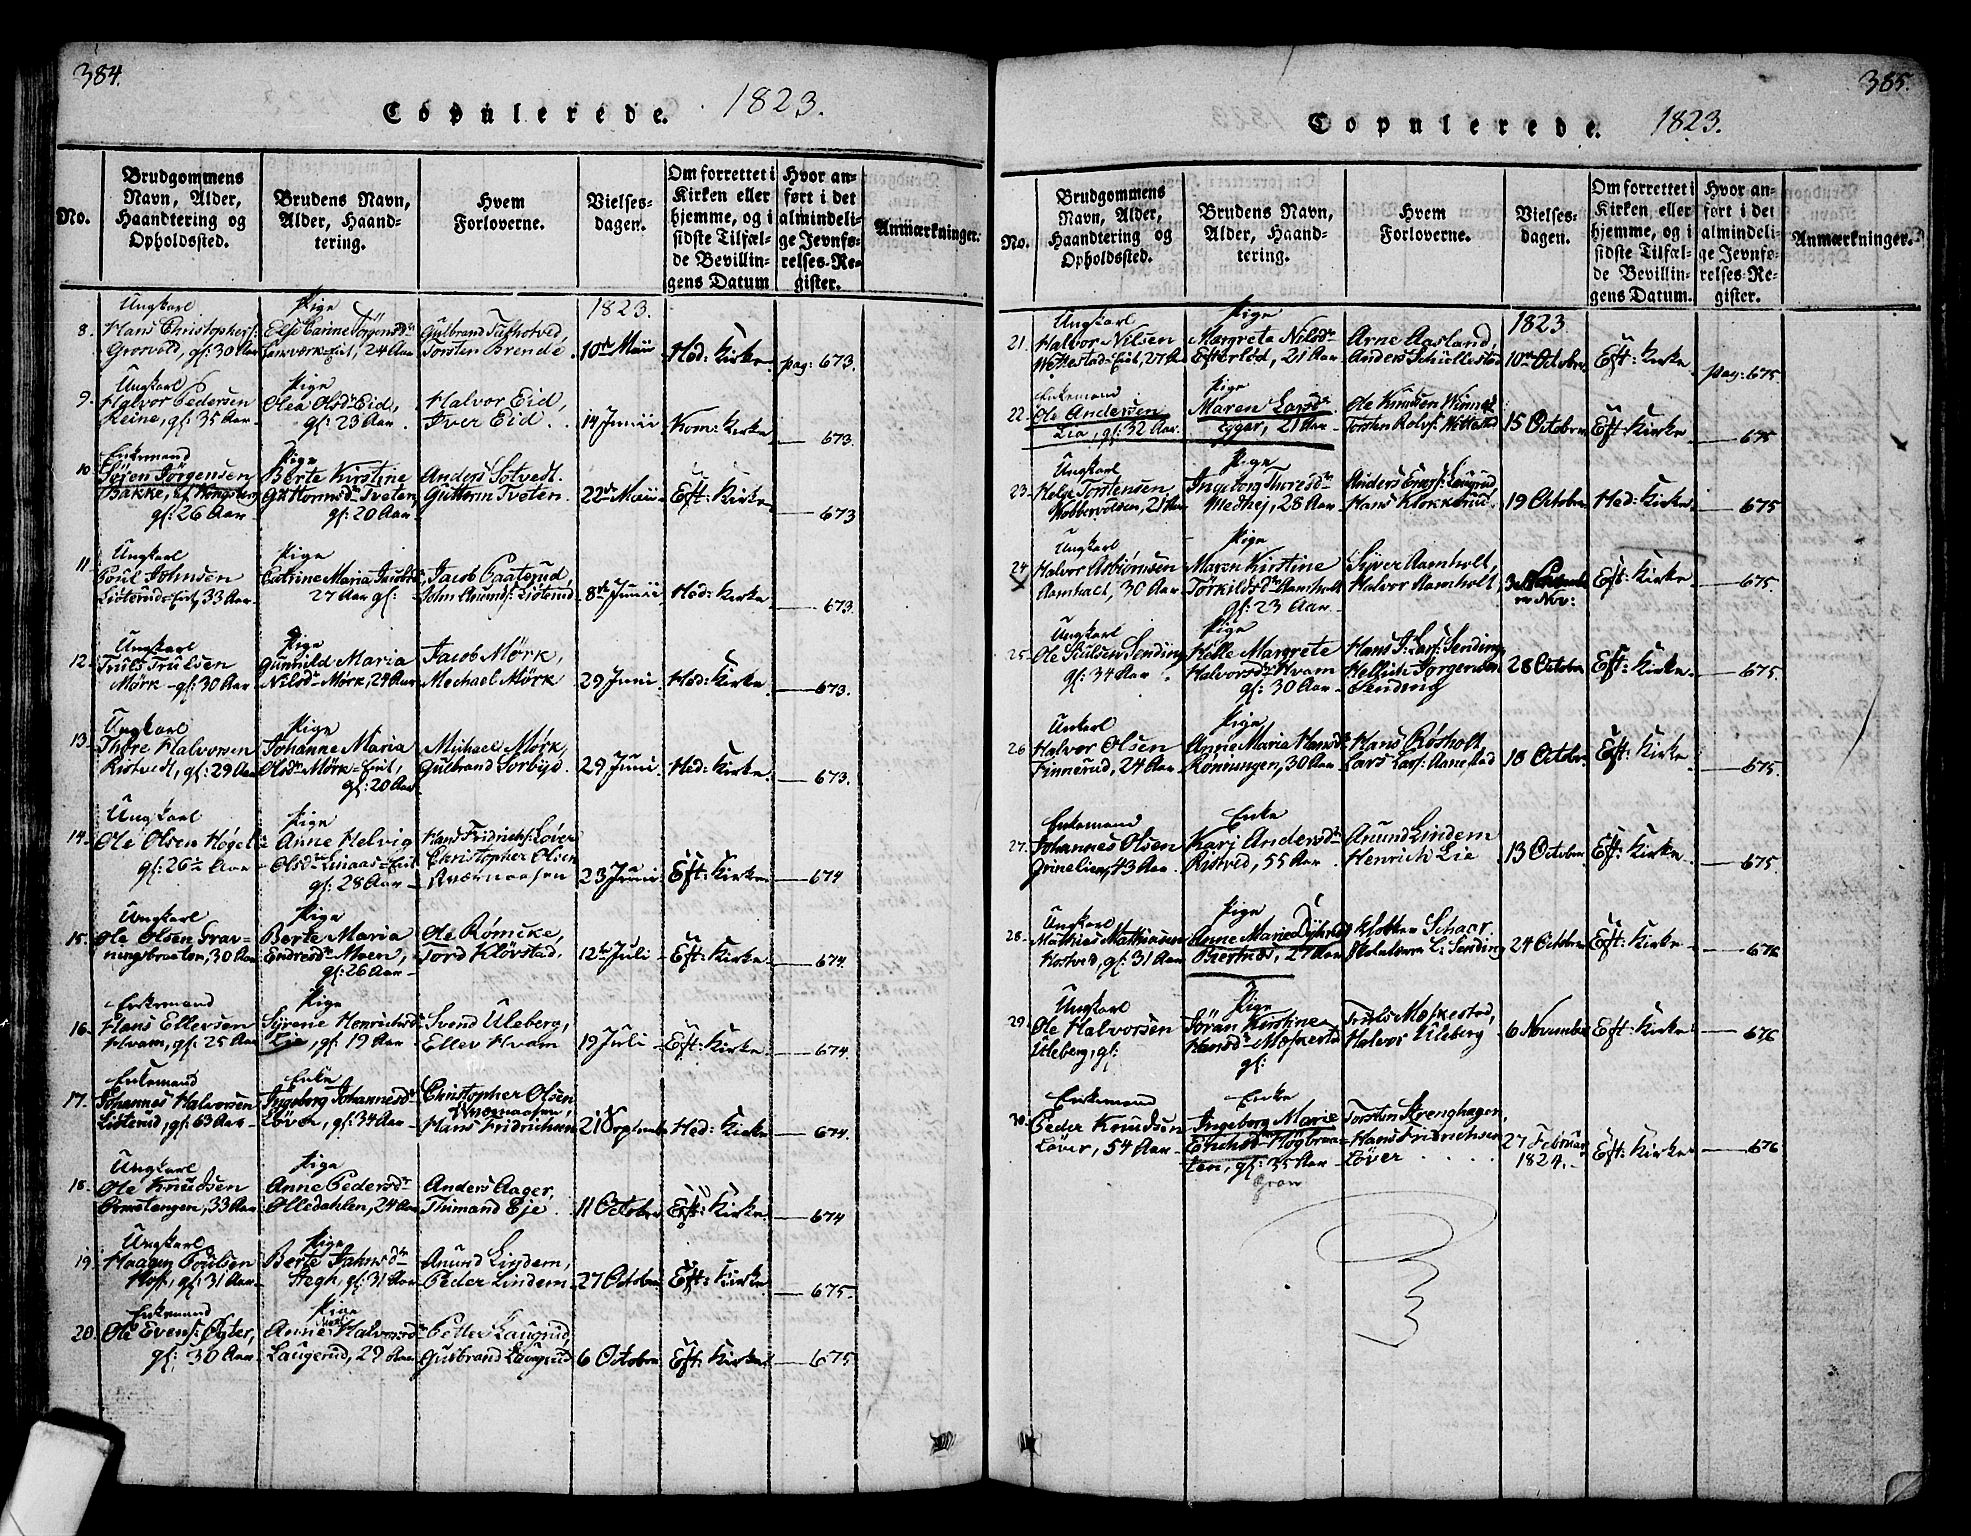 384.
Copulerede. 1823.
No.
Brudgommens Navn, Alder, Haandtering og Opholdssted.
Brudens Navn, Alder, Haandtering.
Hvem Forloverne.
Vielsesdagen.
Om forrettet i Kirken eller hjemme, og i sidste Tilfælde Bevillingens Datum
Hvor anført i det almindelige Jevnførelses-Register.
Anmærkninger.
1823.
8. Ungkarl Hans Christophers: Grosvold, gf: 30 Aar
Pige Else Carine Jörgensdr 24 Aar
Gulbrand Torsten Brende
10de Maii
Hed: Kirke
pag: 673.
9. Ungkarl Halvor Pedersen Reine, gf: 35 Aar
Pige Olea Olsdr Eid, gf: 23 Aar
Halvor Eid, Iver Eid.
14 Junii
Kom: Kirke
673.
10. Enkemand Sören Jörgensen Bakke, af Kongsberg gf: 26 Aar
Pige Berte Kirstine Guttormsdr Tveten, gf: 20 Aar
Anders Sotvedt. Guttorm Tveten.
22de Maii
Eft: Kirke
673
11. Ungkarl Poul Johnsen Listerud-Eie, 33 Aar
Pige Catrine Maria Jacobsdr 27 Aar gf:
Jacob Paaterud, John Anunds: Listerud
8de Junii
Hed: Kirke
673.
12. Ungkarl Truls Trulsen Mörk gf: 30 Aar
Pige Gunnild Maria Nilsdr Mörk, 24 Aar
Jacob Mörk, Mechael Mörk
29 Juni
Hed: Kirke
673.
13. Ungkarl Thore Halvorsen Ristvedt, gf: 29 Aar
Pige Johanne Maria Olsdr Mörk-Eie, gf: 20 Aar
Michael Mörk, Gulbrand Sorbye.
29 Juni
Hed: Kirke
673.
14. Ungkarl Ole Olsen Høgeli gf: 26½ Aar
Pige Anne Helvig Olsdr gf: 28 Aar
Hans Fridrichs: Löver Christopher Olsen
23 Junii
Eft: Kirke
674
15. Ungkarl Ole Olsen Gravningsbraaten, 30 Aar
Pige Berte Maria Endresdr Moen, gf: 26 Aar
Ole Römcke, Tord Klövstad.
12te Juli
Eft: Kirke
674.
16. Enkemand Hans Ellevsen Hvam, gf: 25 Aar
Pige Syrene Henrichsdr Lie, gf: 19 Aar
Svend Uleberg, Ellev Hvam
19 Juli
Eft: Kirke
674.
17. Enkemand Johannes Halvorsen Listerud, gf: 63 Aar
Enke Ingeborg Johannesdr Löver, gf: 34 Aar
Christopher Olsen Hans Fridrichsen
21 Septembr
Hed: Kirke
674.
18. Ungkarl Ole Knudsen Ormetangen, 33 Aar
Pige Anne Pedersdr Olledahlen, 24 Aar
Anders Aager, Thimand Eje
11 October
Eft: Kirke
674
19. Ungkarl Haagen Poulsen Hof, gf: 31 Aar
Pige Berte Jahnsdr Stegh, gf: 31 Aar
Anund Lindem, Peder Lindem
27 October
Eft: Kirke
675.
20. Enkemand Ole Evens: Öyter, gf: 30 Aar
Pige Anne Halvorsdr Laugerud, 29 Aar
Petter Laugrud, Gulbrand Laugrud
6 October
Eft: Kirke
675
385.
Copulerede. 1823.
No.
Brudgommens Navn, Alder, Haandtering og Opholdssted.
Brudens Navn, Alder, Haandtering.
Hvem Forloverne.
Vielsesdagen.
Om forrettet i Kirken eller hjemme, og i sidste Tilfælde Bevillingens Datum.
Hvor anført i det almindelige Jevnførelses-Register.
Anmærkninger.
1823
21. Ungkarl Halvor Nilsen Wettestad-Eie, 27 Aar
Pige Margreta Nilsdr Efterlöd, 21 Aar
Arne Aasland, Anders Schiellestad
10de October
Eft: Kirke
pag: 675.
22. Enkemand Ole Andersen Lia, gf: 32 Aar.
Pige Maren Larsdr Tyger, 21 Aar
Ole Knudsen Torsten Rolvs: Wittestad
15 October
Eft: Kirke
675
23. Ungkarl Helge Torstensen Kobbervolsen, 21 Aar
Pige Ingeborg Thoresdr Medhej, 28 Aar
Anders Laugrud, Hans Klokkerud.
19 October
Hed: Kirke
675
24. Ungkarl Halvor Asbiönsen 30 Aar
Pige Maren Kirstine Törkildsdr Aamholt gf: 23 Aar
Syver Aamholt, Halvor Aamholt,
3 Nov:
Eft: Kirke
675.
25. Ungkarl Ole Poulsen Sending gf: 34 Aar
Pige Helle Margrete Halvorsdr Hvam gf: 30 Aar
Hans J: Lars: Sending Hellich Jörgensen Sending
28 October
Eft: Kirke
675.
26 Unkarl Halvor Olsen Finnerud, 24 Aar
Pige Anne Maria Hansdr Rönningen, 30 Aar
Hans Rösholt, Lars Lars: Aanestad
18 October
Eft: Kirke
675.
27. Enkemand Johannes Olsen Grinelien, 43 Aar
Enke Karj Andersdr Ristved, 55 Aar
Anund Lindem Henrich Lie
13 October
Eft: Kirke
675
28. Ungkarl Mathias Mathiasen Kostved, gf: 31 Aar
Pige Anne Marie Dyhren 27 Aar
Klokker Schaar. Skoleholder L: Sending
24 October
Eft: Kirke
676
29. Ungkarl Ole Halvorsen Uleberg, gf:
Pige Jöran Kirstine Hansdr Moskestad gf:
Truls Moskestad, Halvor Uleberg
6 November
Eft: Kirke
676
30. Enkemand Peder Knudsen Löver, 54 Aar
Enke Ingeborg Marie Erichsdr Högbraaten, gf: 35 Aar Gran
Torsten Strenghagen, Hans Fridrichsen Löver
27 Februar 1824.
Eft: Kirke
676